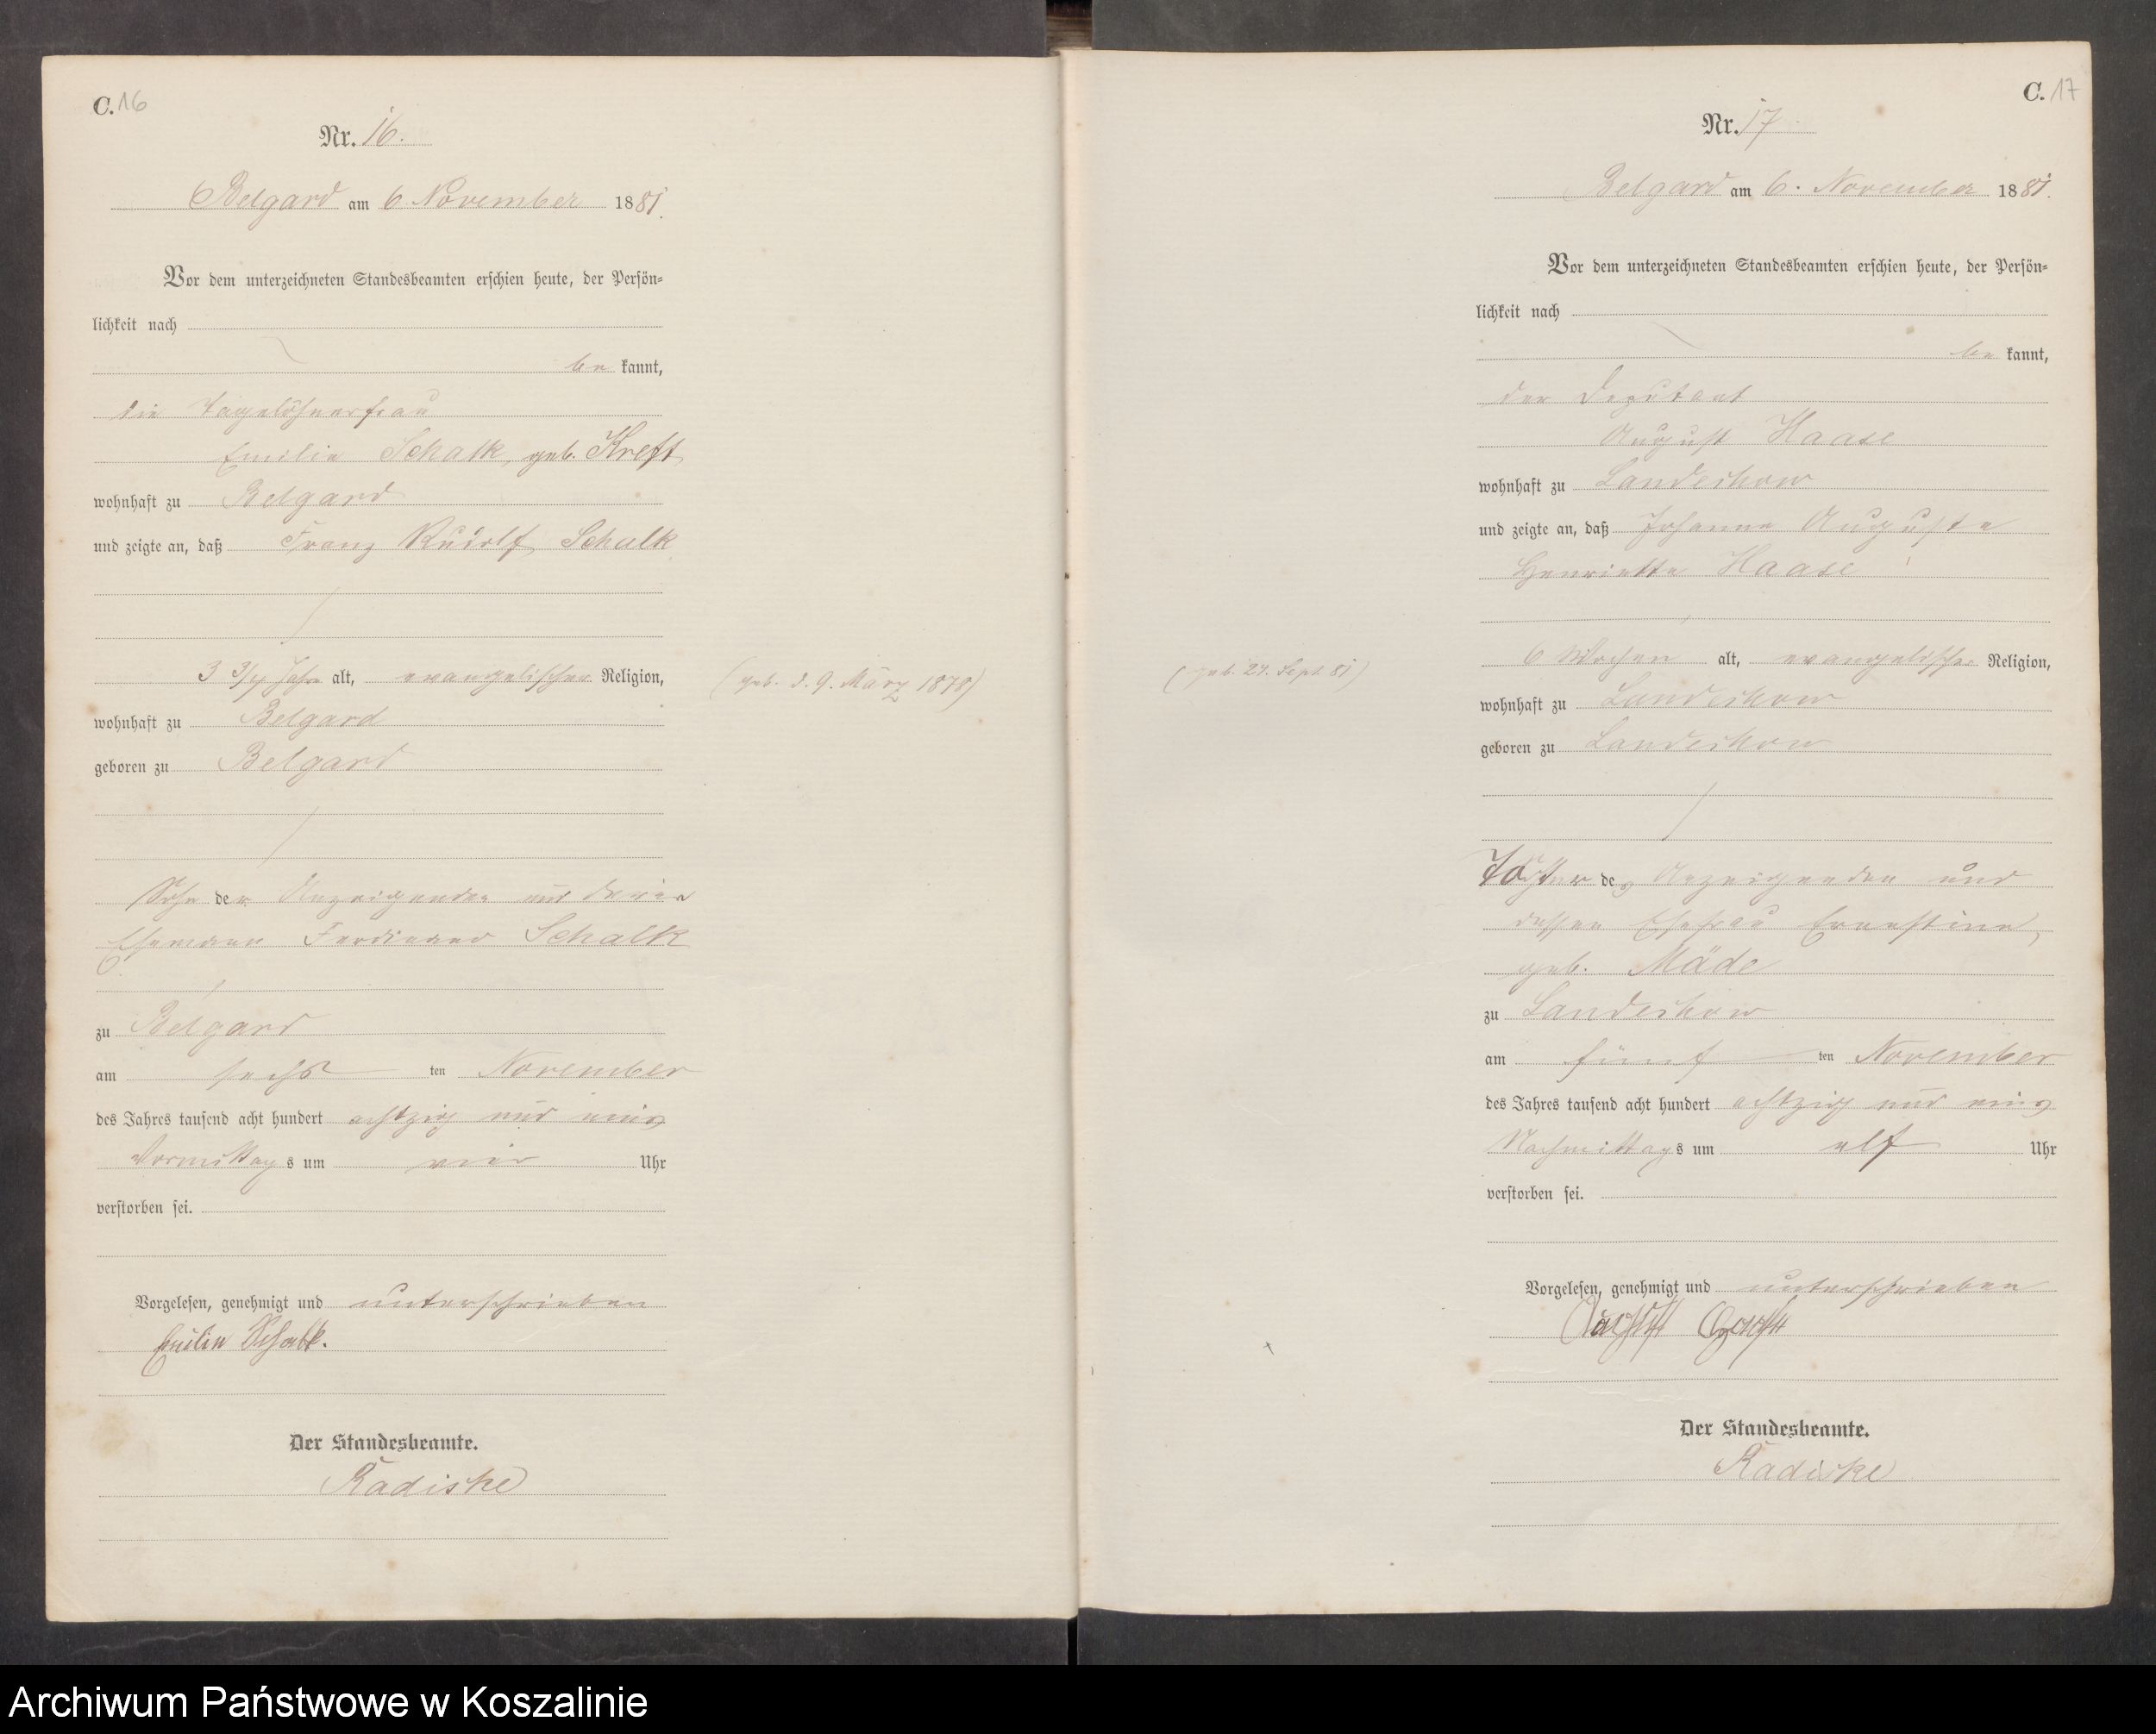 C. 16
Nr. 16.
Belgard am 6. November 1881.
Vor dem unterzeichneten Standesbeamten erschien heute, der Persön=
lichkeit nach
be kannt,
die Tagelöhnerfrau
Emilie Schalk, geb. Kreft
wohnhaft zu Belgard
und zeigte an, daß Franz Rudolf Schalk
3 3/4 Jahre alt, evangelischer Religion,
(geb. d. 9. März 1878)
wohnhaft zu Belgard
geboren zu Belgard
Sohn der Anzeigenden und deren
Ehemann Ferdinand Schalk
zu Belgard
am sechs ten November
des Jahres tausend acht hundert achtzig und eins
Vormittags um vier Uhr
verstorben sei.
Vorgelesen, genehmigt und unterschrieben
Emilie Schalk.
Der Standesbeamte.
Radiske
C. 17
Nr. 17
Belgard am 6. November 1881.
Vor dem unterzeichneten Standesbeamten erschien heute, der Persön=
lichkeit nach
be kannt,
der Deputant
August Haase
wohnhaft zu Landechow
und zeigte an, daß Johanne Auguste
Henriette Haase
6 Wochen alt, evangelischer Religion,
(geb. 24. Sept. 81)
wohnhaft zu Landechow
geboren zu Landechow
Tochter des Anzeigenden und
dessen Ehefrau Ernestine,
geb. Mäde
zu Landechow
am fünf ten November
des Jahres tausend acht hundert achtzig und eins
Nachmittags um elf Uhr
verstorben sei.
Vorgelesen, genehmigt und unterschrieben
Der Standesbeamte.
Radiske
Archiwum Państwowe w Koszalinie